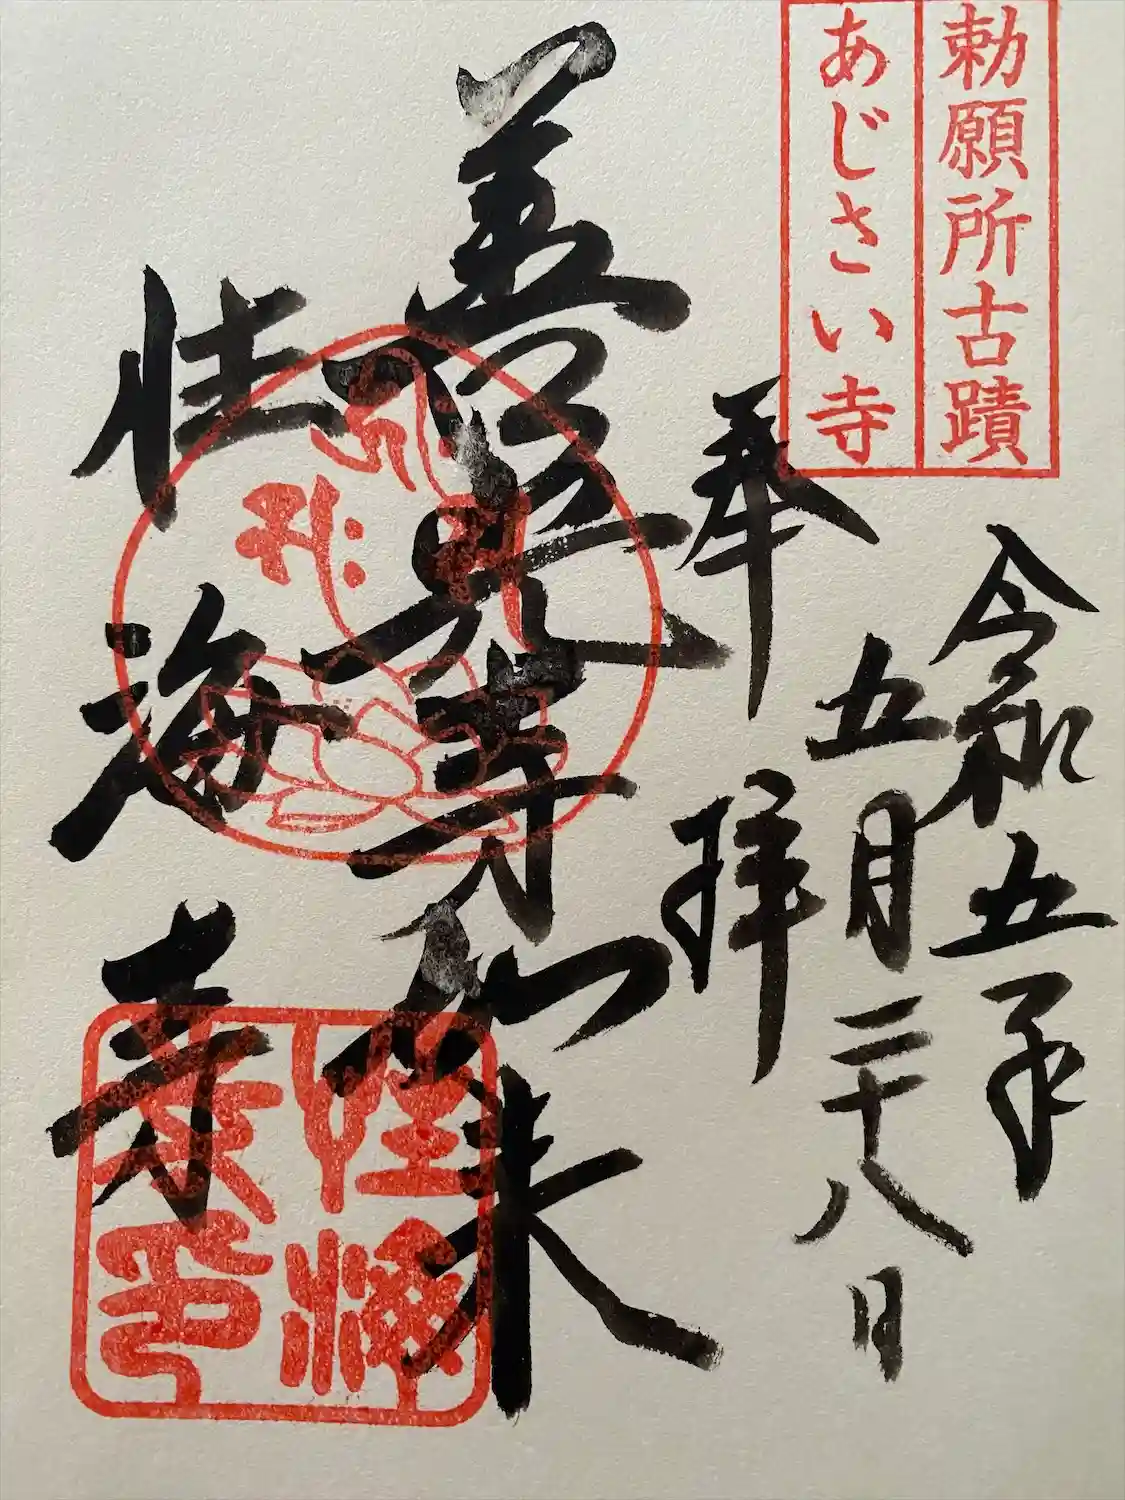 勅願所古蹟
あじさい寺
令和五年
五月二十八日
奉拝
善光寺如来
性海寺
性海
寺印